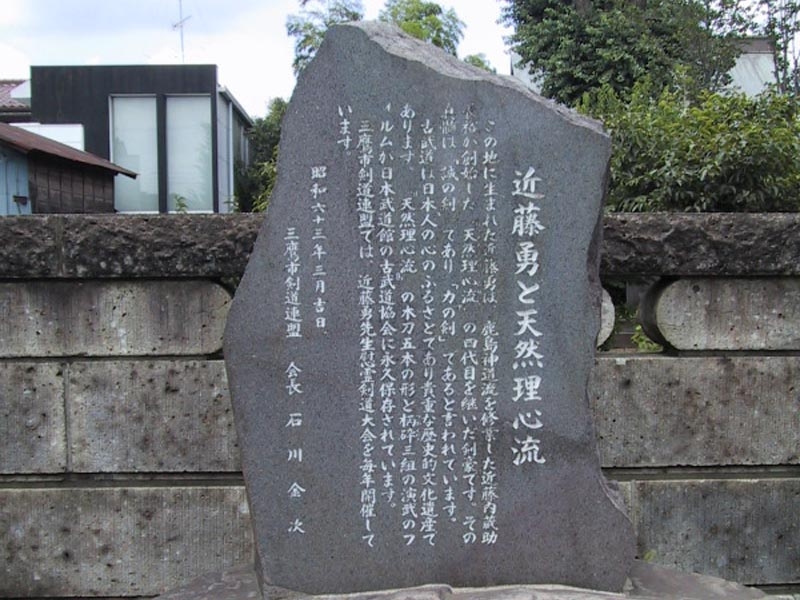 近藤勇と天然理心流
この地に生まれた近藤勇は、鹿島神道流を修業した近藤内蔵助
が創始した「天然理心流」の四代目を継いだ剣家です。その
は「誠の剣」であり「力の剣」であると言われています。
古武道は日本人の心のふるさとであり貴重な歴史的文化遺産で
あります。「天然理心流」の木刀五本の形と柄砕三組の演武のフ
ィルムが日本武道館の古武道協会に永久保存されています。
三鷹市剣道連盟では、近藤勇先生慰霊剣道大会を毎年開催して
います。
昭和六十三年三月吉日
三鷹市剣道連盟 会長 石川金次